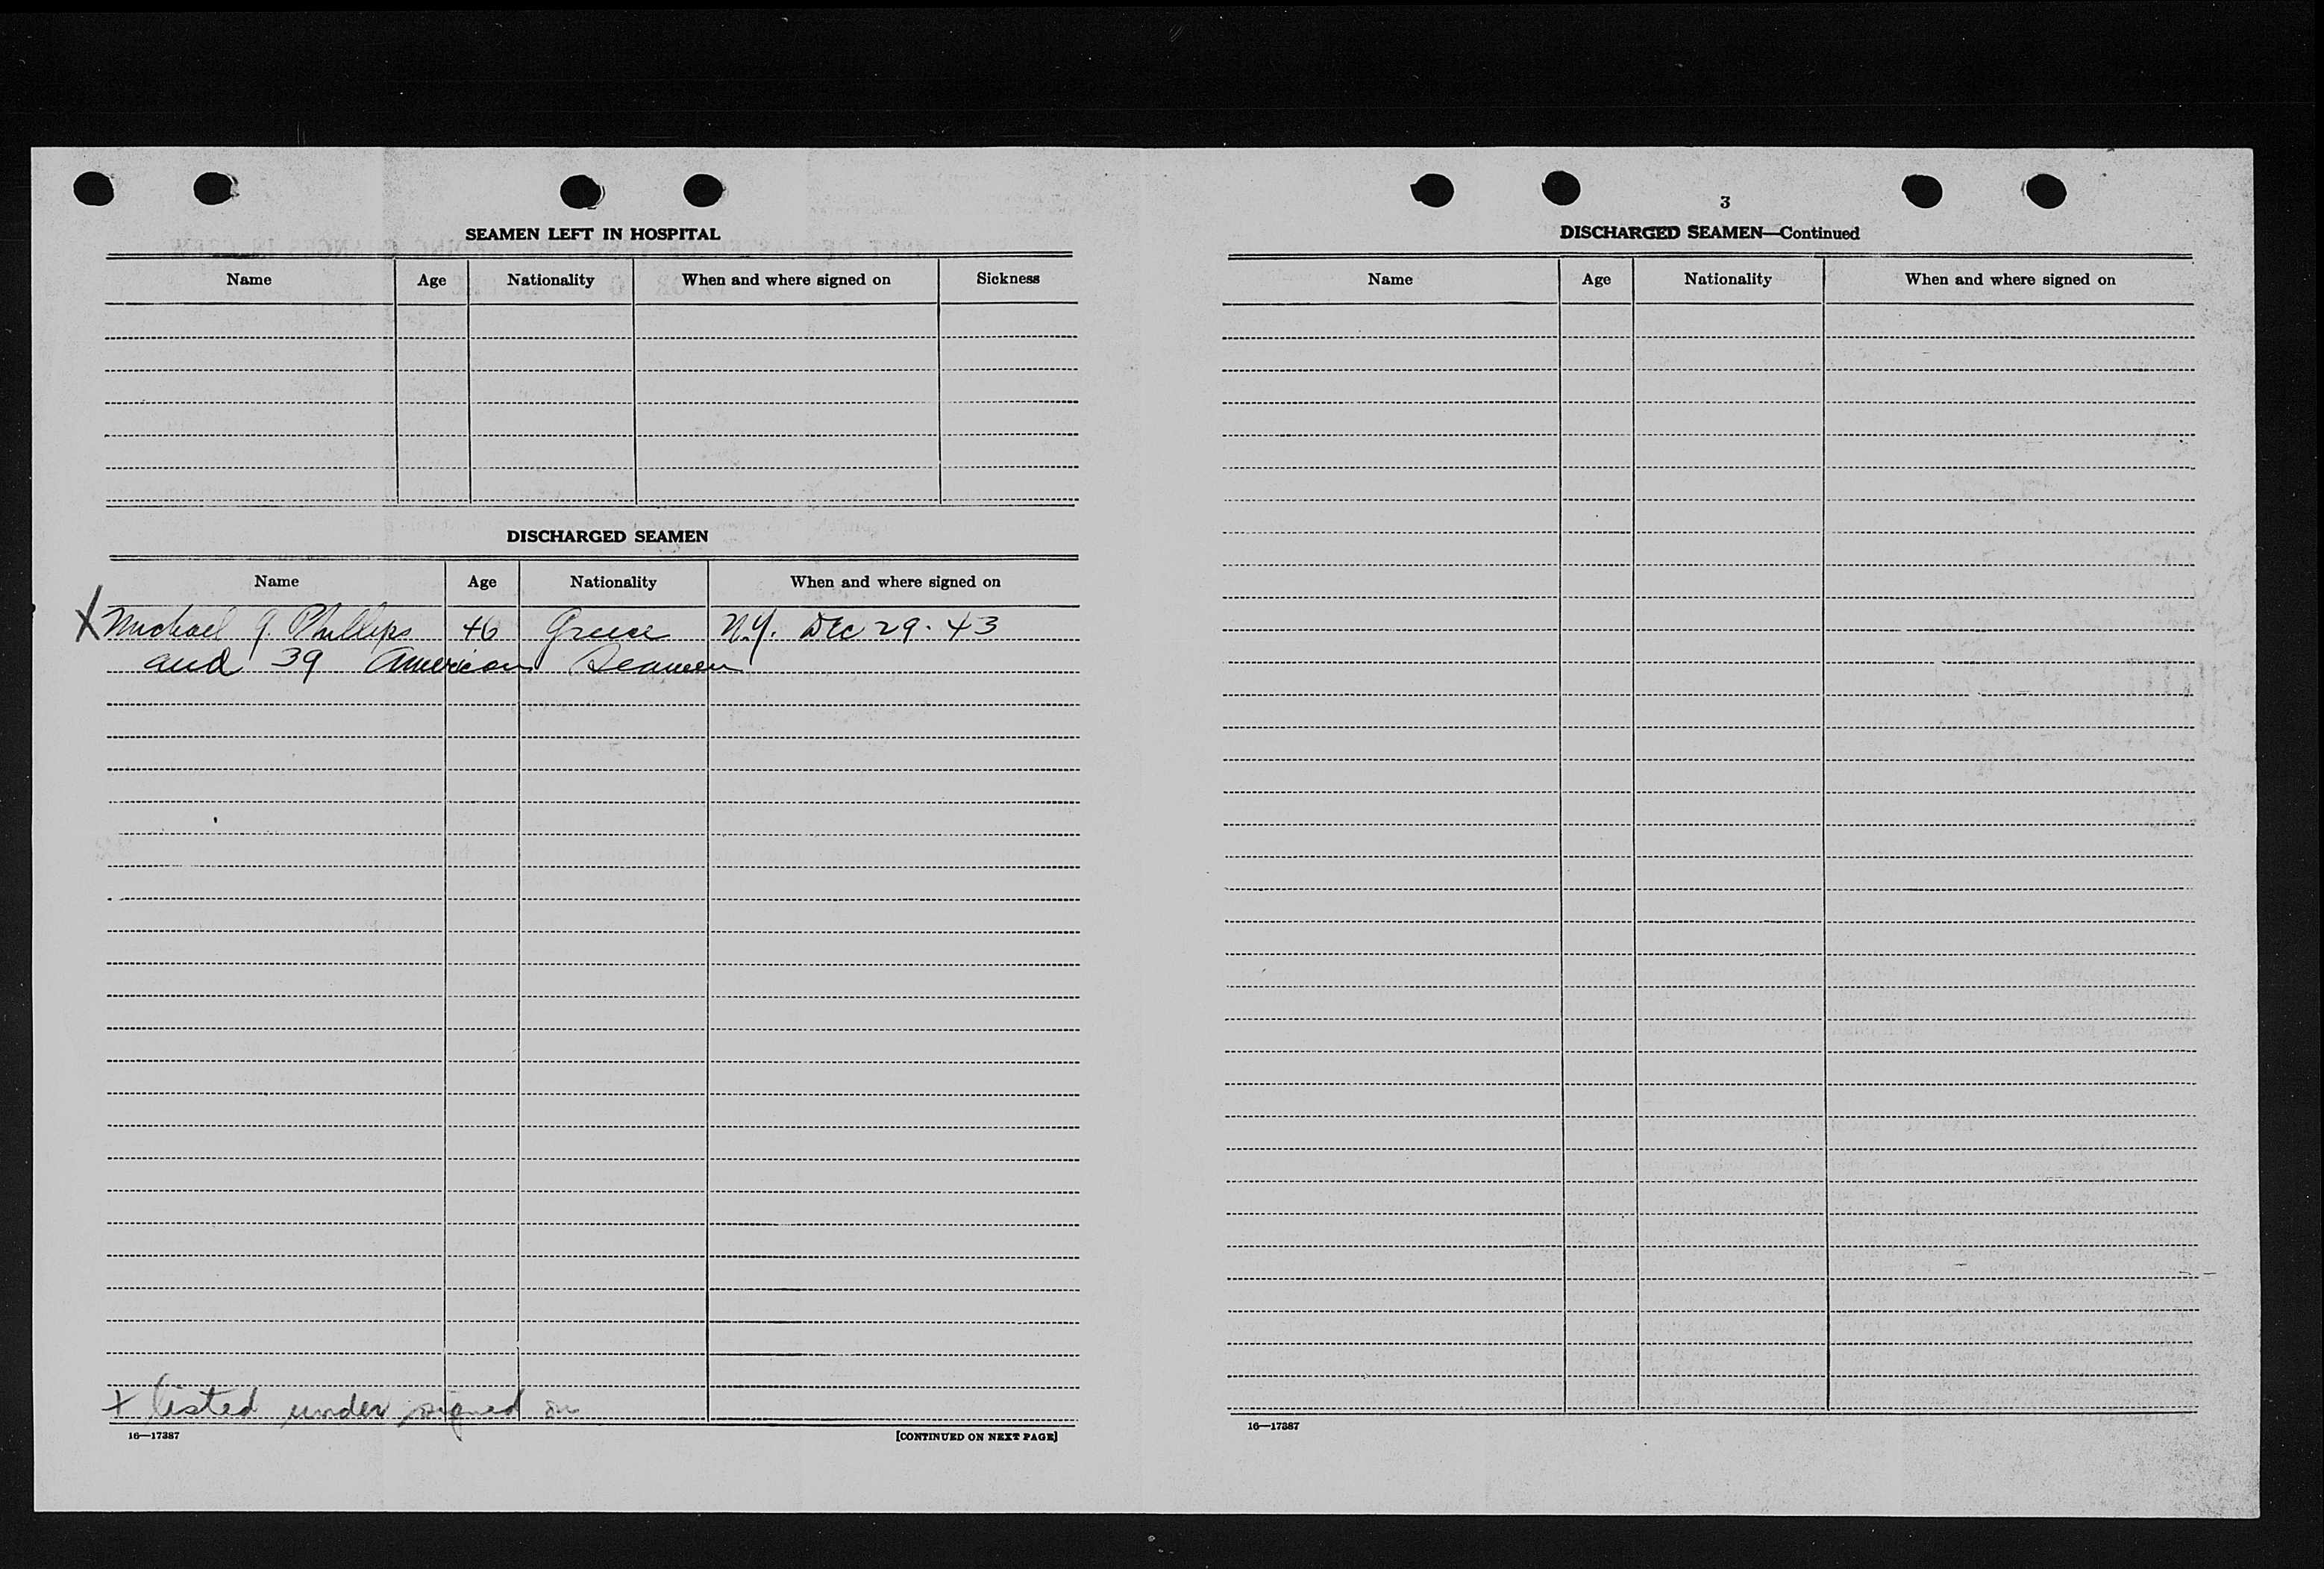 SEAMEN LEFT IN HOSPITAL
Name Age Nationality When and where signed on Sickness
DISCHARGED SEAMEN
Name Age Nationality When and where signed on
X Michael G. Phillips 46 Greece N.Y. Dec 29. 43
and 39 American Seamen
+ listed under signed on
16—17387 [CONTINUED ON NEXT PAGE]
3
DISCHARGED SEAMEN—Continued
Name Age Nationality When and where signed on
16—17387